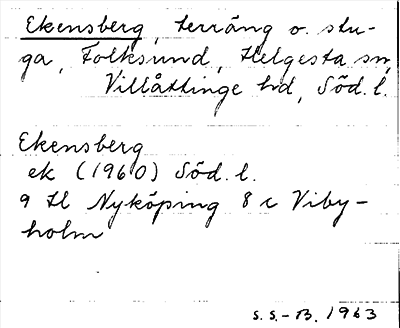 Ekensberg, terräng o. stu-
ga, Folksund, Helgesta sn,
Villåttinge hd, Söd. l.
Ekensberg
ek (1960) Söd. l.
9 H Nyköping 8 c Viby-
holm
S. S. - B. 1963